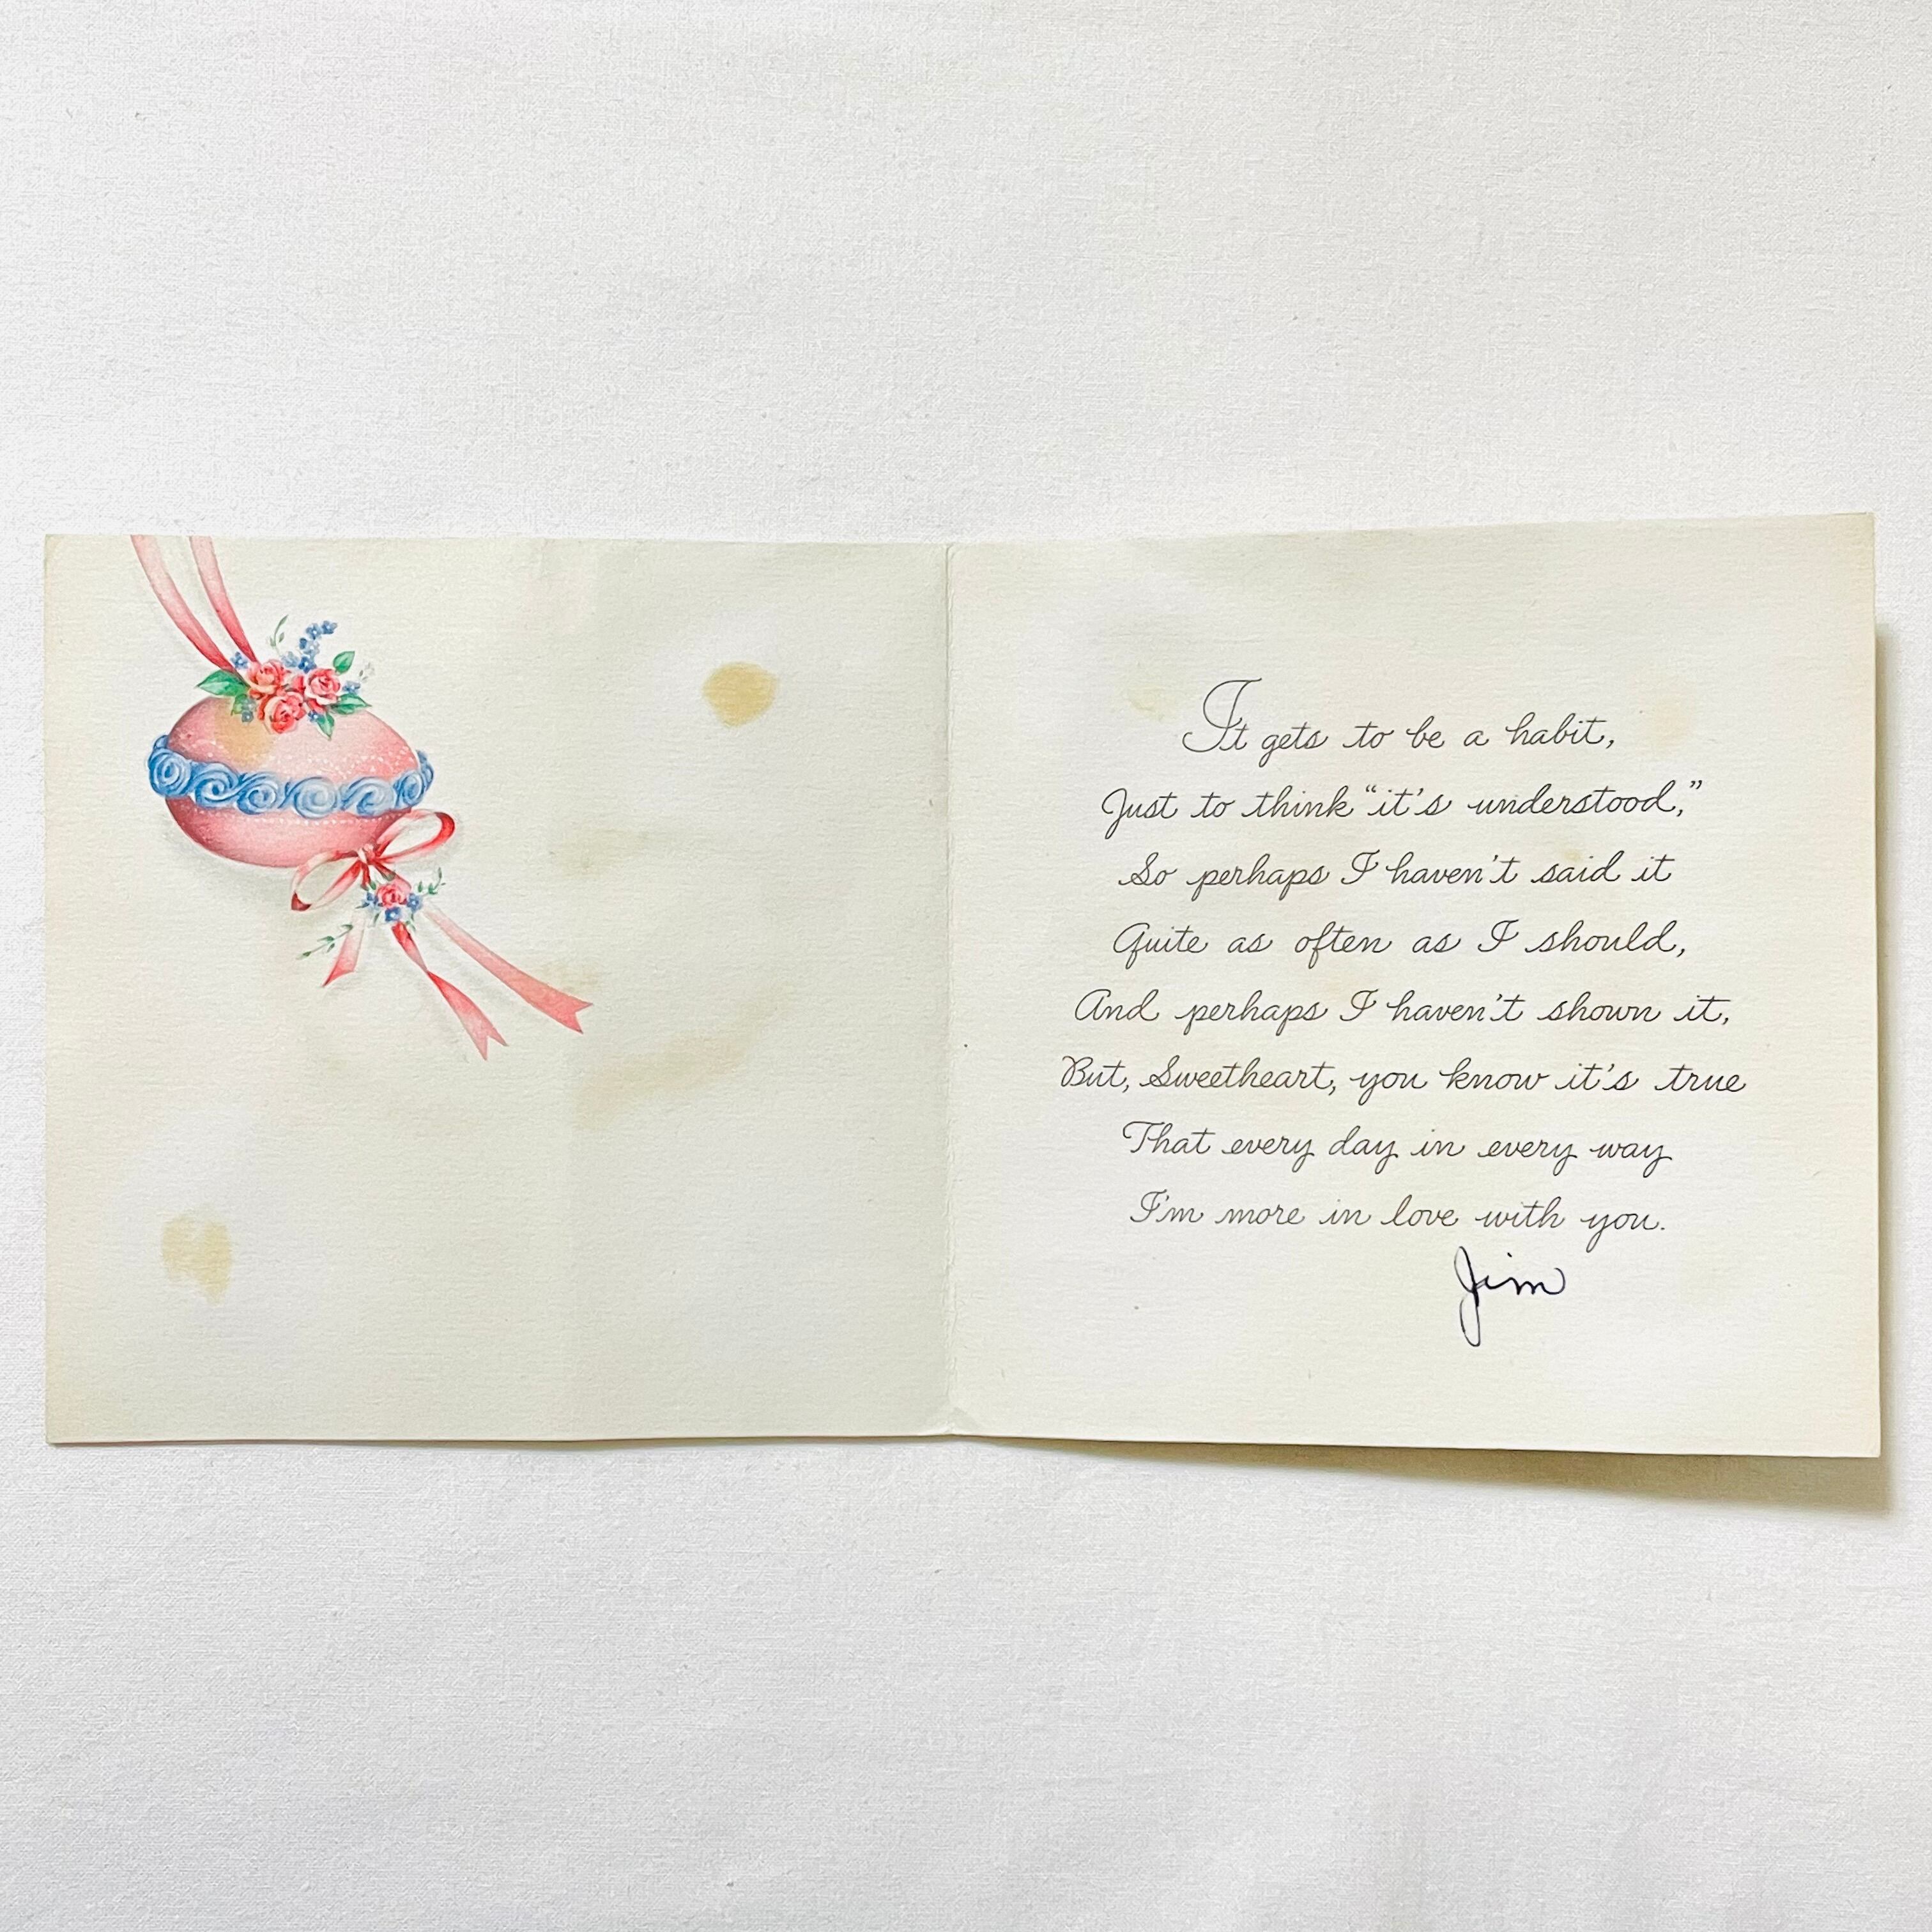 It gets to be a habit,
Just to think “it's understood,”
So perhaps I haven't said it
Quite as often as I should,
And perhaps I haven't shown it,
But, Sweetheart, you know it's true
That every day in every way
I'm more in love with you.
Jim